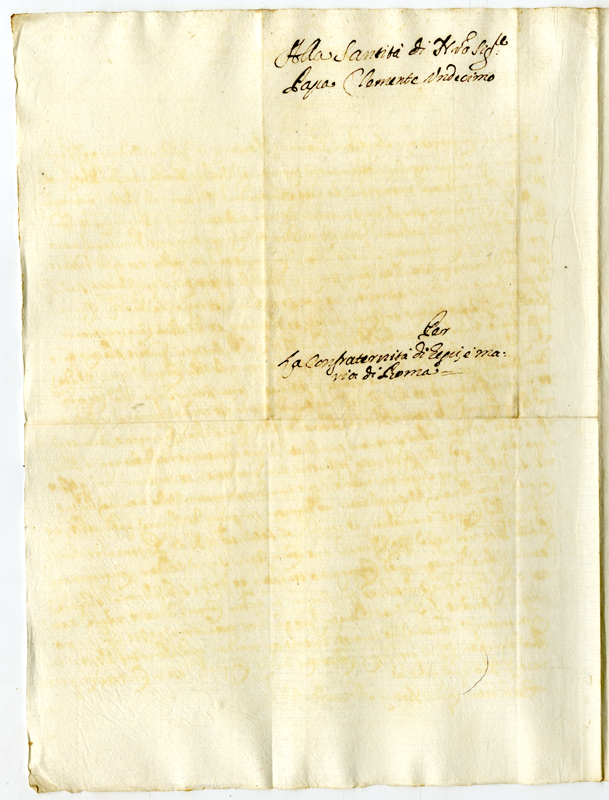 Alla Santità di N.ro Sig.re
Papa Clemente Undecimo
Per
La Confraternità di Giesù, e Ma-
ria di Roma